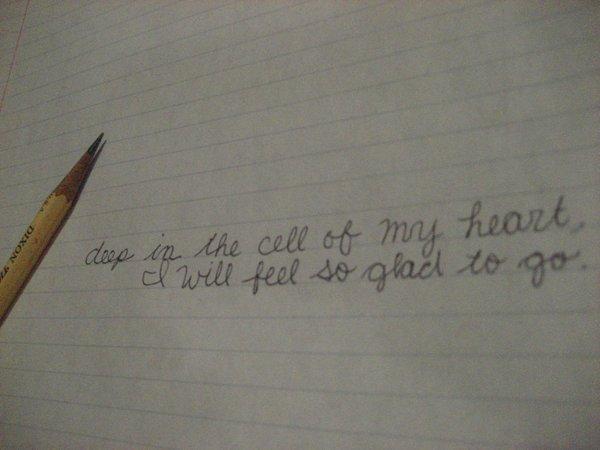 deep in the cell of my heart,
I will feel so glad to go.
DIXON